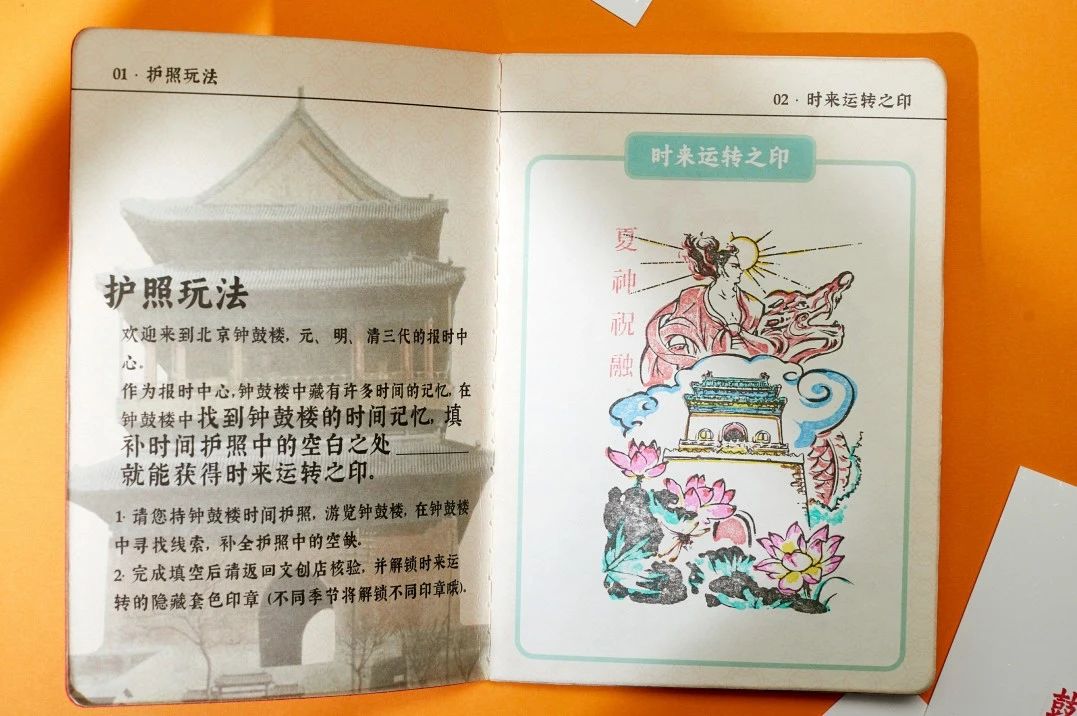 01 · 护照玩法
护照玩法
欢迎来到北京钟鼓楼，元、明、清三代的报时中
心。
作为报时中心，钟鼓楼中藏有许多时间的记忆，在
钟鼓楼中找到钟鼓楼的时间记忆，填
补时间护照中的空白之处______
就能获得时来运转之印.
1· 请您持钟鼓楼时间护照，游览钟鼓楼，在钟鼓楼
中寻找线索，补全护照中的空缺.
2· 完成填空后请返回文创店核验，并解锁时来运
转的隐藏套色印章（不同季节将解锁不同印章哦）.
02 · 时来运转之印
时来运转之印
夏神祝融
鼓